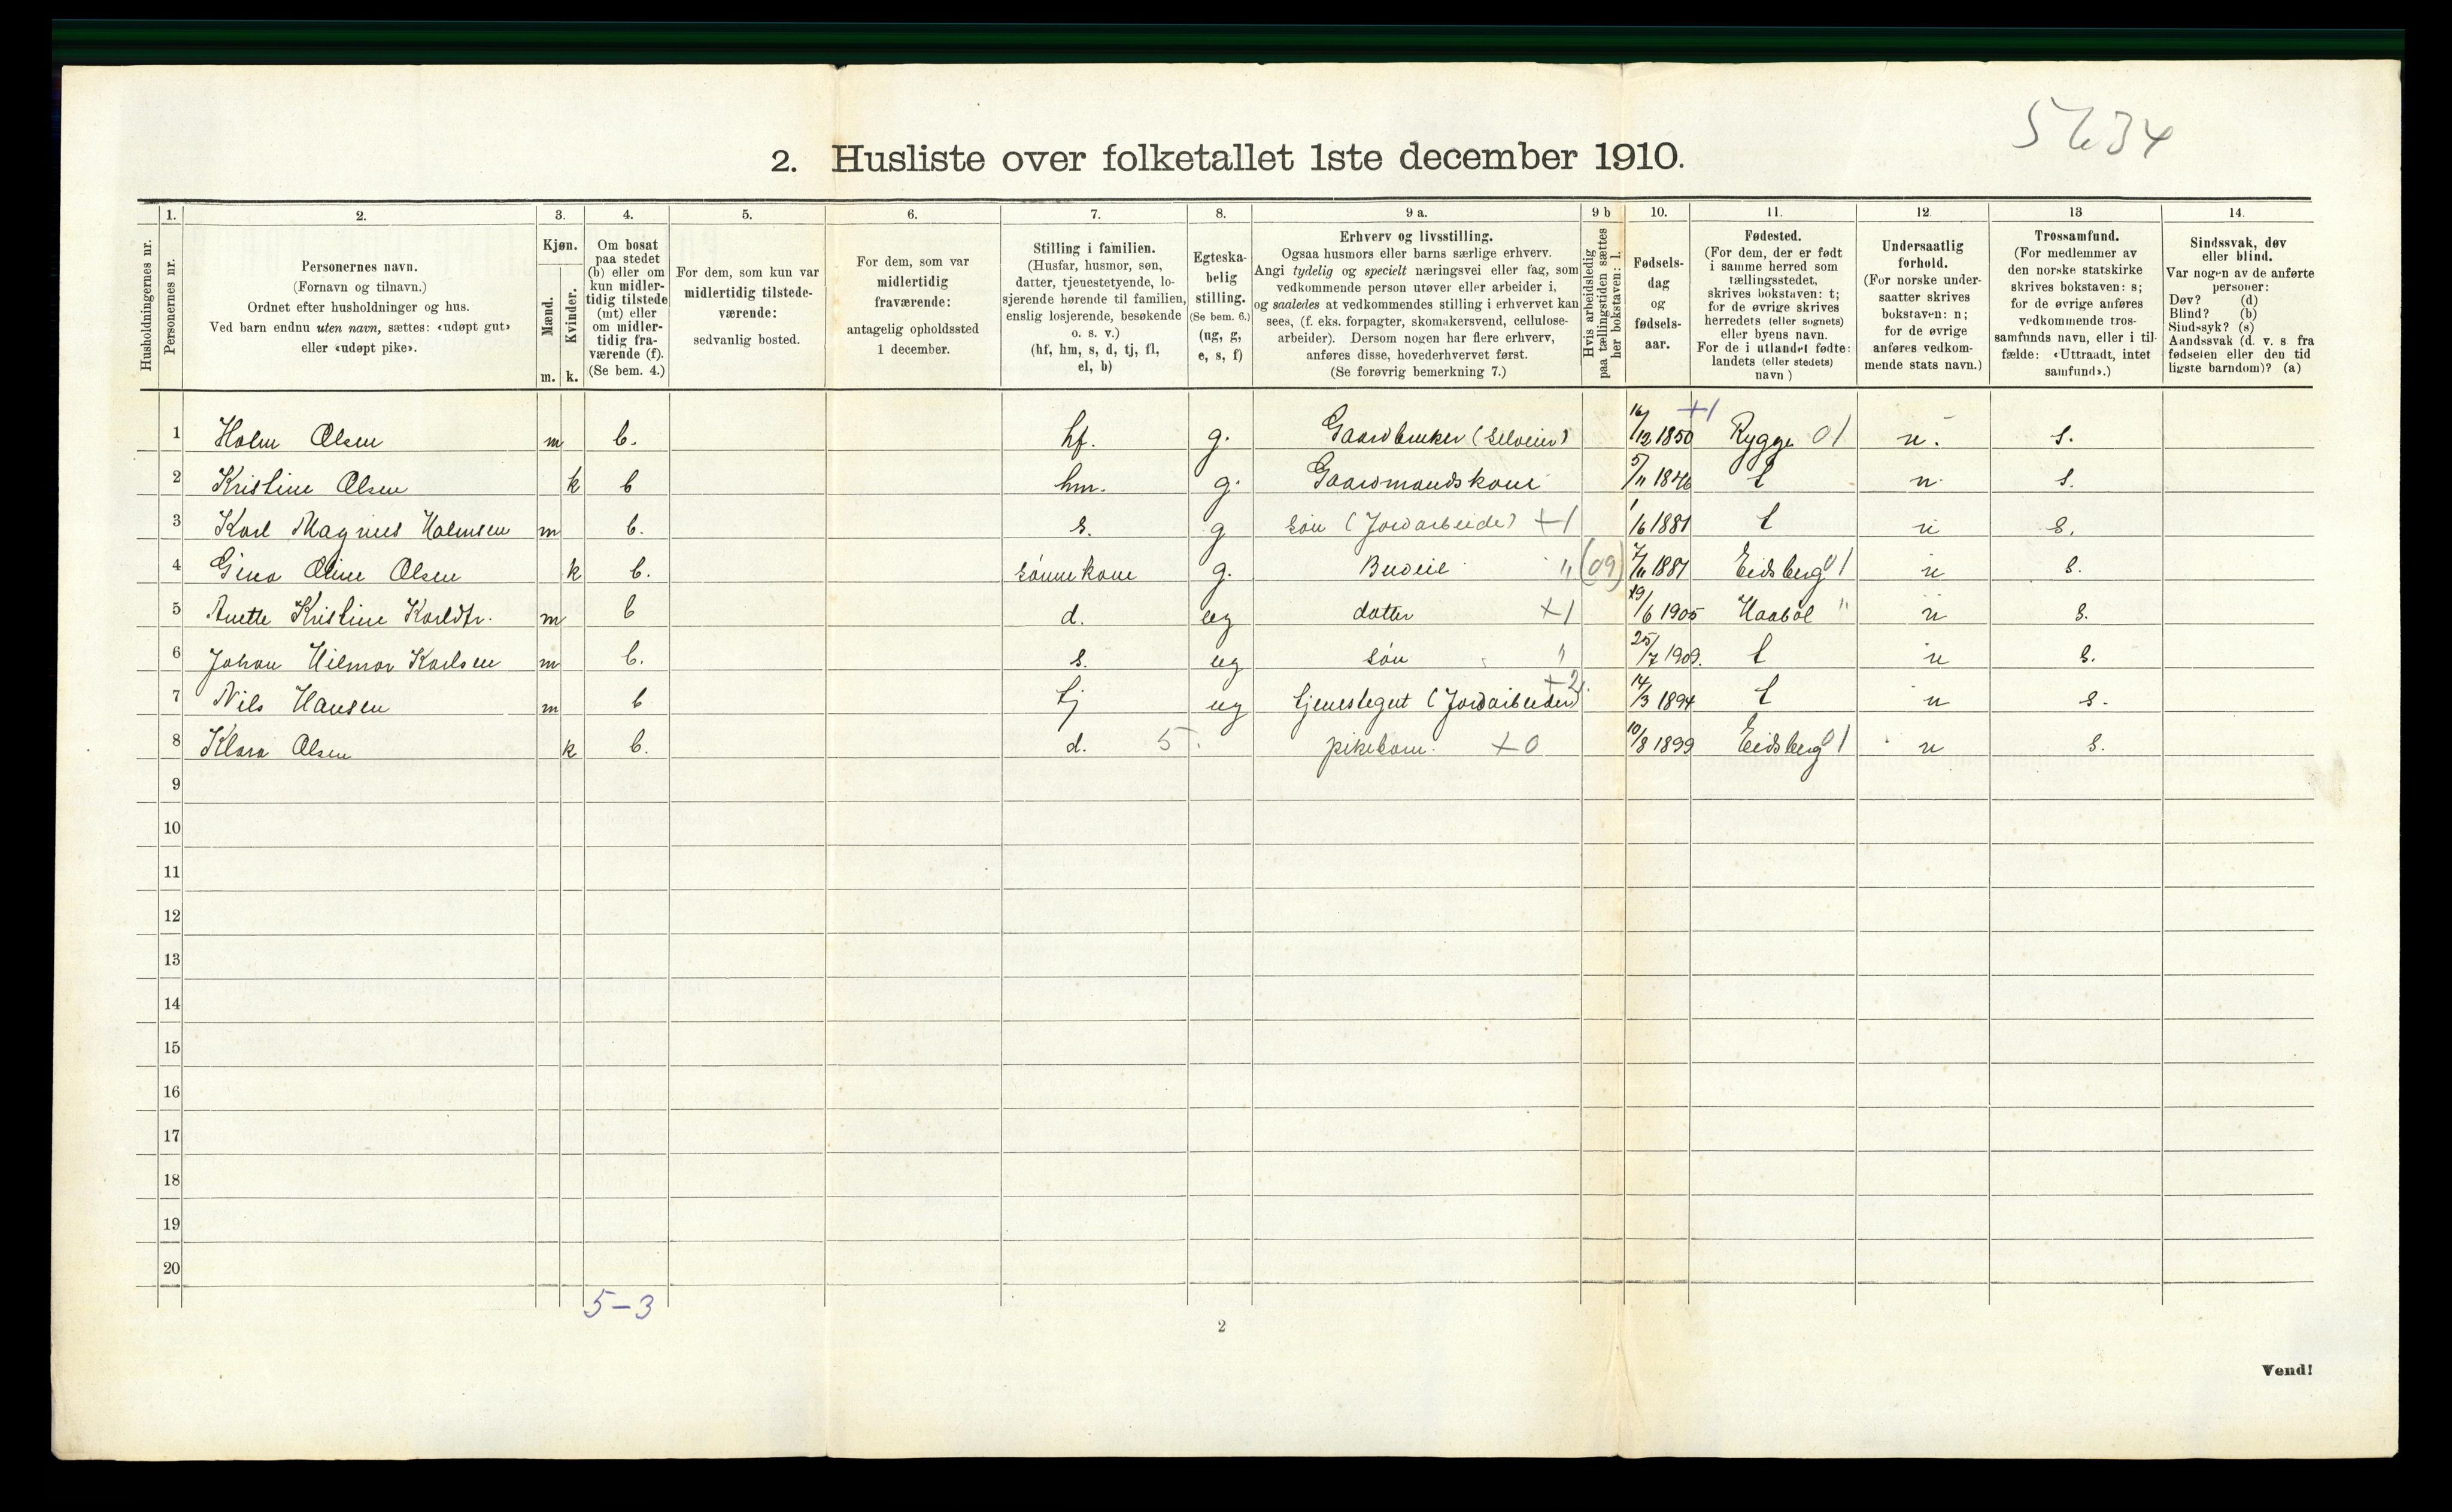 5634
2. Husliste over folketallet 1ste december 1910.
Husholdningernes nr.
1. Personernes nr.
2. Personernes navn.
(Fornavn og tilnavn.)
Ordnet efter husholdninger og hus.
Ved barn endnu uten navn, sættes: «udøpt gut»
eller «udøpt pike».
3. Kjøn.
Mænd. m.
Kvinder. k.
4. Om bosat
paa stedet
(b) eller om
kun midler-
tidig tilstede
(mt) eller
om midler-
tidig fra-
værende (f).
(Se bem. 4.)
5. For dem, som kun var
midlertidig tilstede-
værende:
sedvanlig bosted.
6. For dem, som var
midlertidig
fraværende:
antagelig opholdssted
1 december.
7. Stilling i familien.
(Husfar, husmor, søn,
datter, tjenestetyende, lo-
sjerende hørende til familien,
enslig losjerende, besøkende
o. s. v.)
(hf, hm, s, d, tj, fl,
el, b)
8. Egteska-
belig
stilling.
(Se bem. 6.)
(ug, g,
e, s, f)
9 a. Erhverv og livsstilling.
Ogsaa husmors eller barns særlige erhverv.
Angi tydelig og specielt næringsvei eller fag, som
vedkommende person utøver eller arbeider i,
og saaledes at vedkommendes stilling i erhvervet kan
sees, (f. eks. forpagter, skomakersvend, cellulose-
arbeider). Dersom nogen har flere erhverv,
anføres disse, hovederhvervet først.
(Se forøvrig bemerkning 7.)
9 b Hvis arbeidsledig
paa tællingstiden sættes
her bokstaven: l.
10. Fødsels-
dag
og
fødsels-
aar.
11. Fødested.
(For dem, der er født
i samme herred som
tællingsstedet,
skrives bokstaven: t;
for de øvrige skrives
herredets (eller sognets)
eller byens navn.
For de i utlandet fødte:
landets (eller stedets)
navn)
12. Undersaatlig
forhold.
(For norske under-
saatter skrives
bokstaven: n;
for de øvrige
anføres vedkom-
mende stats navn.)
13 Trossamfund.
(For medlemmer av
den norske statskirke
skrives bokstaven: s;
for de øvrige anføres
vedkommende tros-
samfunds navn, eller i til-
fælde: «Uttraadt, intet
samfund».)
14. Sindssvak, døv
eller blind.
Var nogen av de anførte
personer:
Døv? (d)
Blind? (b)
Sindssyk? (s)
Aandssvak (d. v. s fra
fødselen eller den tid
ligste barndom)? (a)
1 Holm Olsen m b. hf. g. Gaardbruker (Selveier) 16/12 1850 +1 Rygge 01 n. s.
2 Kristine Olsen k b hm. g. Gaardmandskone 5/11 1846 t n s.
3 Karl Magnus Holmsen m b. s. g søn (Jordarbeide) +1 1/6 1881 t n s.
4 Gina Oline Olsen k b. sønnekone g. Budeie " (09) 7/11 1887 Eidsberg 01 n s.
5 Anette Kristine Karldtr. m b d. ug datter +1 19/6 1905 Haabøl " n s.
6 Johan Hilmar Karlsen m b. s. ug søn " 25/7 1909. t n s.
7 Nils Hansen m b tj ug tjenestegut (Jordarbeider) +2 14/3 1894 t n s.
8 Klara Olsen k b. d. 5. pikebarn. +0 10/8 1899 Eidsberg 01 n s.
9
10
11
12
13
14
15
16
17
18
19
20
5-3
2
Vend!